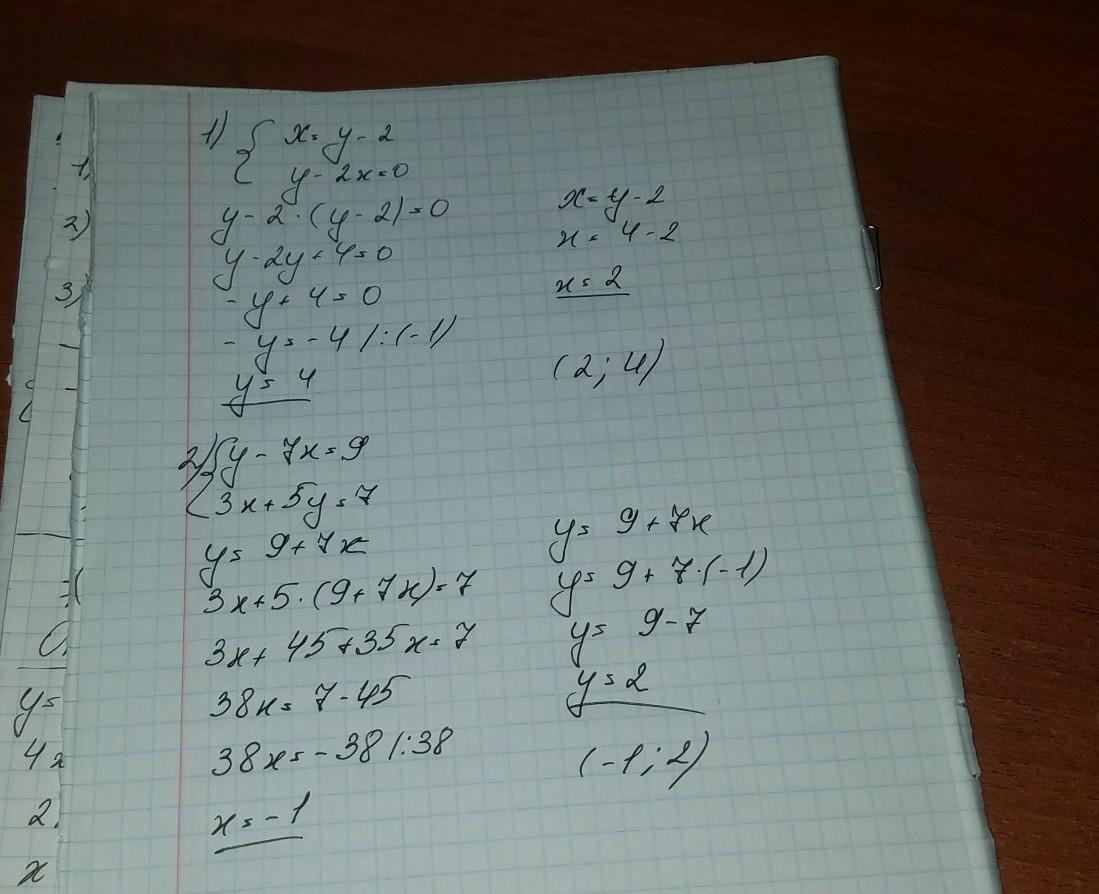 1) { x = y - 2
y - 2x = 0
y - 2 · (y - 2) = 0
y - 2y + 4 = 0
- y + 4 = 0
- y = - 4 /:(-1)
y = 4
x = y - 2
x = 4 - 2
x = 2
(2; 4)
2) { y - 7x = 9
3x + 5y = 7
y = 9 + 7x
3x + 5 · (9 + 7x) = 7
3x + 45 + 35x = 7
38x = 7 - 45
38x = - 38 /:38
x = - 1
y = 9 + 7x
y = 9 + 7 · (-1)
y = 9 - 7
y = 2
(-1; 2)
1)
2)
3)
y =
4x
2.
x